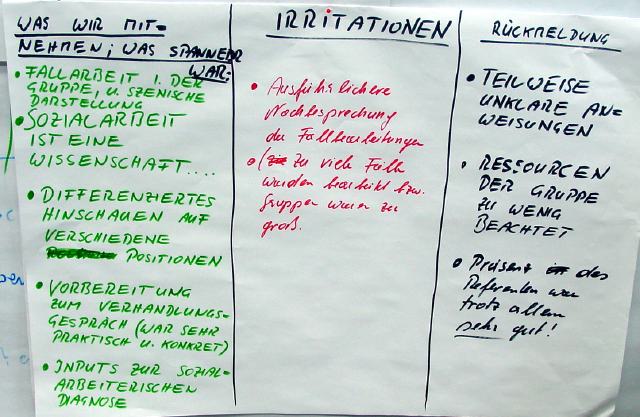 WAS WIR MIT-
NEHMEN; WAS SPANNEND
WAR:
• FALLARBEIT I. DER
GRUPPE, U. SZENISCHE
DARSTELLUNG
• SOZIALARBEIT
IST EINE
WISSENSCHAFT....
• DIFFERENZIERTES
HINSCHAUEN AUF
VERSCHIEDENE
POSITIONEN
• VORBEREITUNG
ZUM VERHANDLUNGS-
GESPRÄCH (WAR SEHR
PRAKTISCH U. KONKRET)
• INPUTS ZUR SOZIAL-
ARBEITERISCHEN
DIAGNOSE
IRRITATIONEN
• Ausführlichere
Nachbesprechung
der Fallbearbeitungen
• (zu viele Fälle
wurden bearbeitet bzw.
Gruppen waren zu
groß.
RÜCKMELDUNG
• TEILWEISE
UNKLARE AN-
WEISUNGEN
• RESSOURCEN
DER GRUPPE
ZU WENIG
BEACHTET
• Präsenz des
Referenten war
trotz allem
sehr gut!